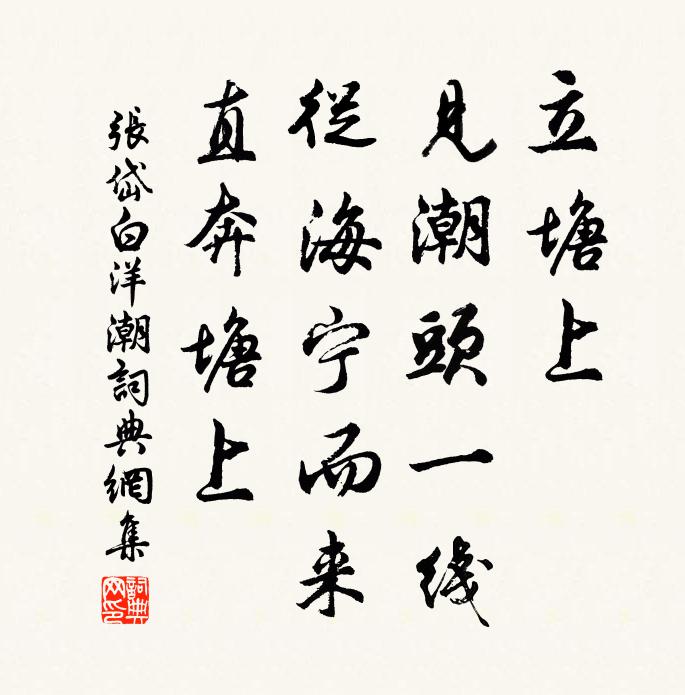 立塘上
見潮頭一綫
從海宁而来
直奔塘上
張岱白洋潮詞典網集
詞典网印